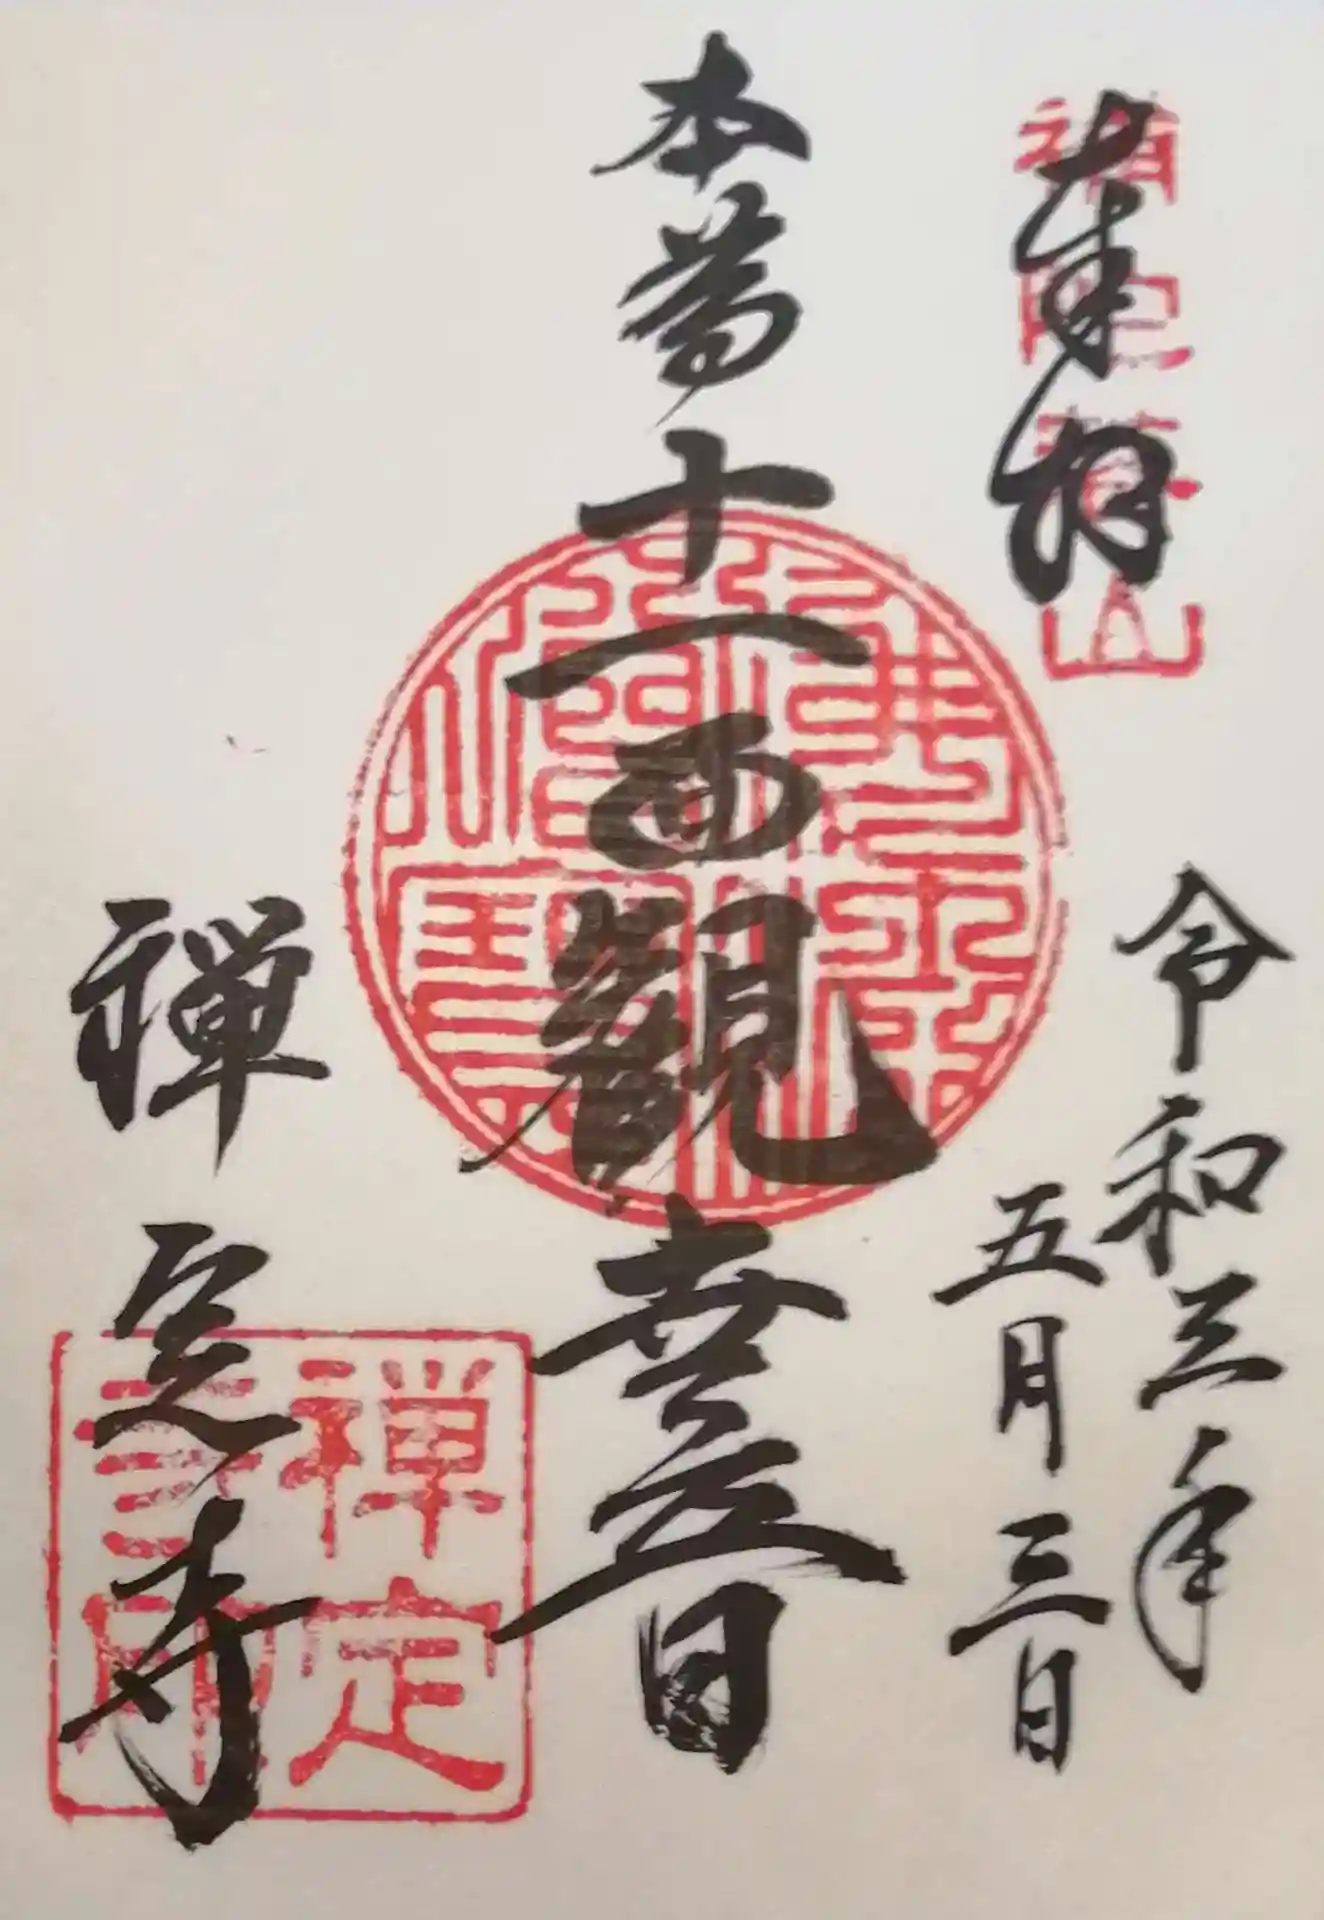 奉拝
令和三年
五月三日
本尊
十一面觀世音
禅定寺
禅定
寺印